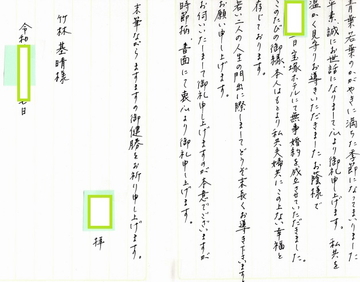 青葉若葉のかがやきに満ちた季節になってまいりました
平素誠にお世話になりまして心より御礼申し上げます。私共を
温かく見守りお導きいただきましたお蔭様で
日宝塚ホテルにて無事婚約を成立させていただきました。
このたびの御縁本人はもとより私共夫婦にこの上ない幸福と
存じております。
若い二人の人生の門出に際しましてどうぞ末長くお導き下さいます
お願い申し上げます。
お伺いいたしまして御礼申し上げますのが本意でございますが
時節柄、書面にて衷心より御礼申し上げます。
末筆ながらますますの御健勝をお祈り申し上げます。
竹林 基晴様
令和 日
拝